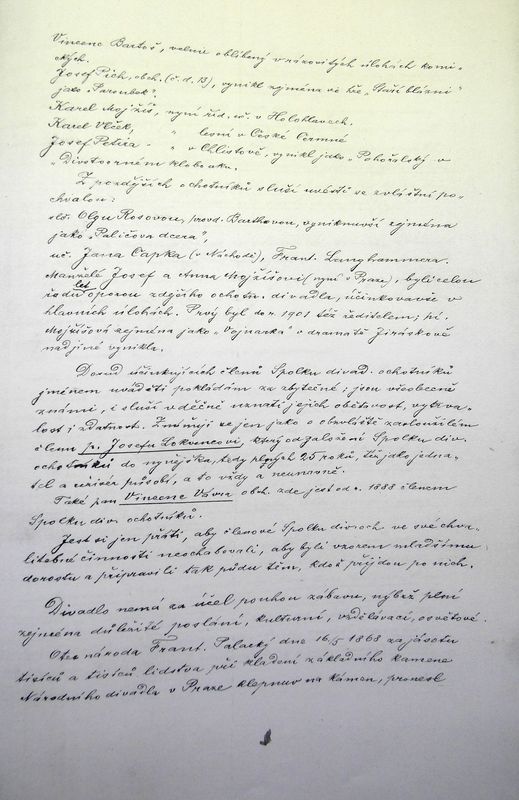 Vincenc Bartoš, velmi oblíbený v rázovitých úlohách komi-
ckých.
Josef Pich, obch. (č. d. 13), vynikl zejména ve hře „Staří blázni"
jako „Paroubek".
Karel Mojžíš, nyní říd. uč. v Holohlavech.
Karel Vlček, " lesní v České Čermné
Josef Petira - " v Chlístově, vynikl jako „Pohořalský v
„Divotvorném klobouku.
Z pozdějších ochotníků sluší uvésti se zvláštní po-
chvalou:
sl. Olgu Rosovou, provd. Barthovou, vyniknuvší zejména
jako „Paličova dcera",
uč. Jana Čapka (v Náchodě), Frant. Langhammera.
Manželé Josef a Anna Mojžíšovi (nyní v Praze), byli celou
řadu let oporou zdejšího ochotn. divadla, účinkovavše v
hlavních úlohách. Prvý byl do r. 1901 též ředitelem; pí.
Mojžíšová zejména jako „Vojnarka" v dramatě Jiráskově
nadjiné vynikla.
Dosud účinkujících členů Spolku divad. ochotníků
jménem uváděti pokládám za zbytečné; jsou všeobecně
známi, i sluší vděčně uznati jejich obětavost, vytrva-
lost i zdatnost. Zmiňuji se jen jako o obzvláště zasloužilém
členu p. Josefu Lokvencovi, který od založení Spolku div.
ochotníků do nynějška, tedy plných 25 roků, tu jako jedna-
tel a režisér působí, a to vždy a neúnavně.
Také pan Vincenc Vávra obch. zde jest od r. 1888 členem
Spolku div. ochotníků.
Jest si jen přáti, aby členové Spolku div. och ve své chva-
litebné činnosti neochabovali, aby byli vzorem mladšímu
dorostu a připravili tak půdu těm, kdož přijdou po nich.
Divadlo nemá za účel pouhou zábavu, nýbrž plní
zejména důležité poslání, kulturní, vzdělávací, osvětové.
Otec národa Frant. Palacký dne 16/5 1868 za jásotu
tisíců a tisíců lidstva při kladení základního kamene
Národního divadla v Praze klepnuv na kámen, pronesl